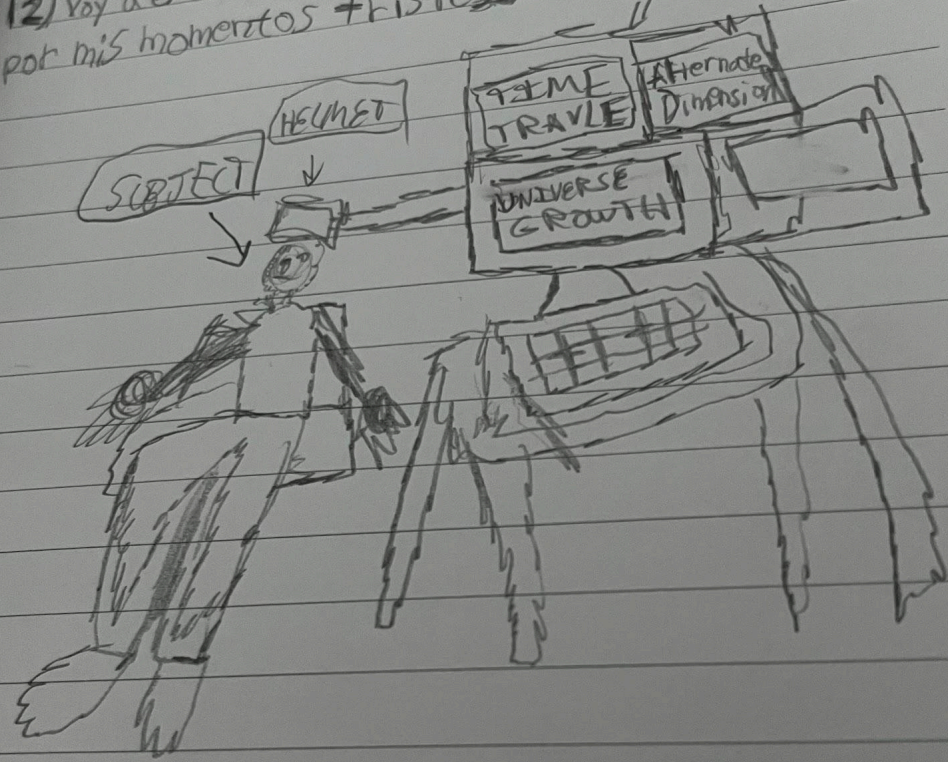 12) Voy a
por mis momentos tristes
HELMET
SUBJECT
TIME
TRAVLE
Alternate
Dimension
UNIVERSE
GROWTH